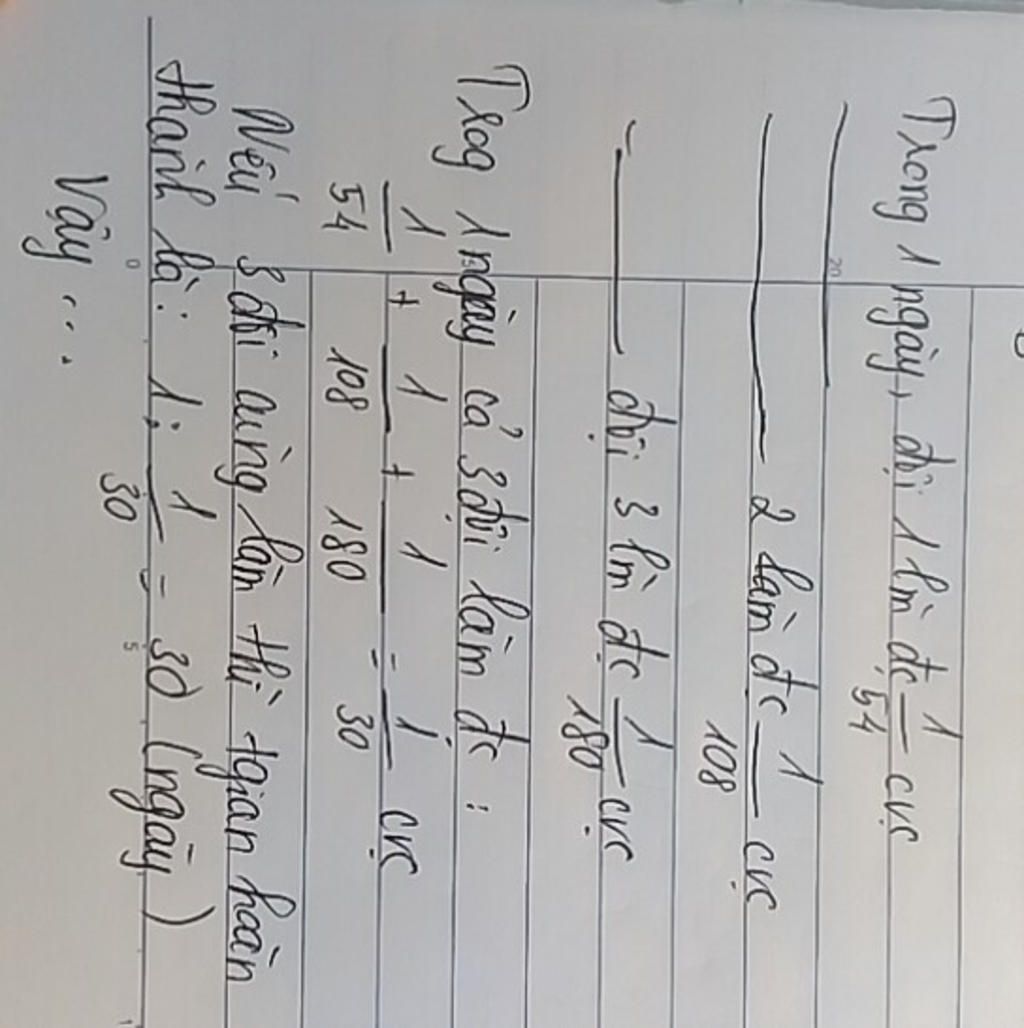 Trong 1 ngày, đội 1 lm̀ đc 1/54 cvc
2 làm đc 1/108 cvc
- đội 3 lm̀ đc 1/180 cvc
Trog 1 ngày cả 3 đội làm đc :
1/54 + 1/108 + 1/180 = 1/30 cvc
Nếu 3 đội cùng làm thì tgian hoàn
thành là: 1 : 1/30 = 30 (ngày)
Vậy ...